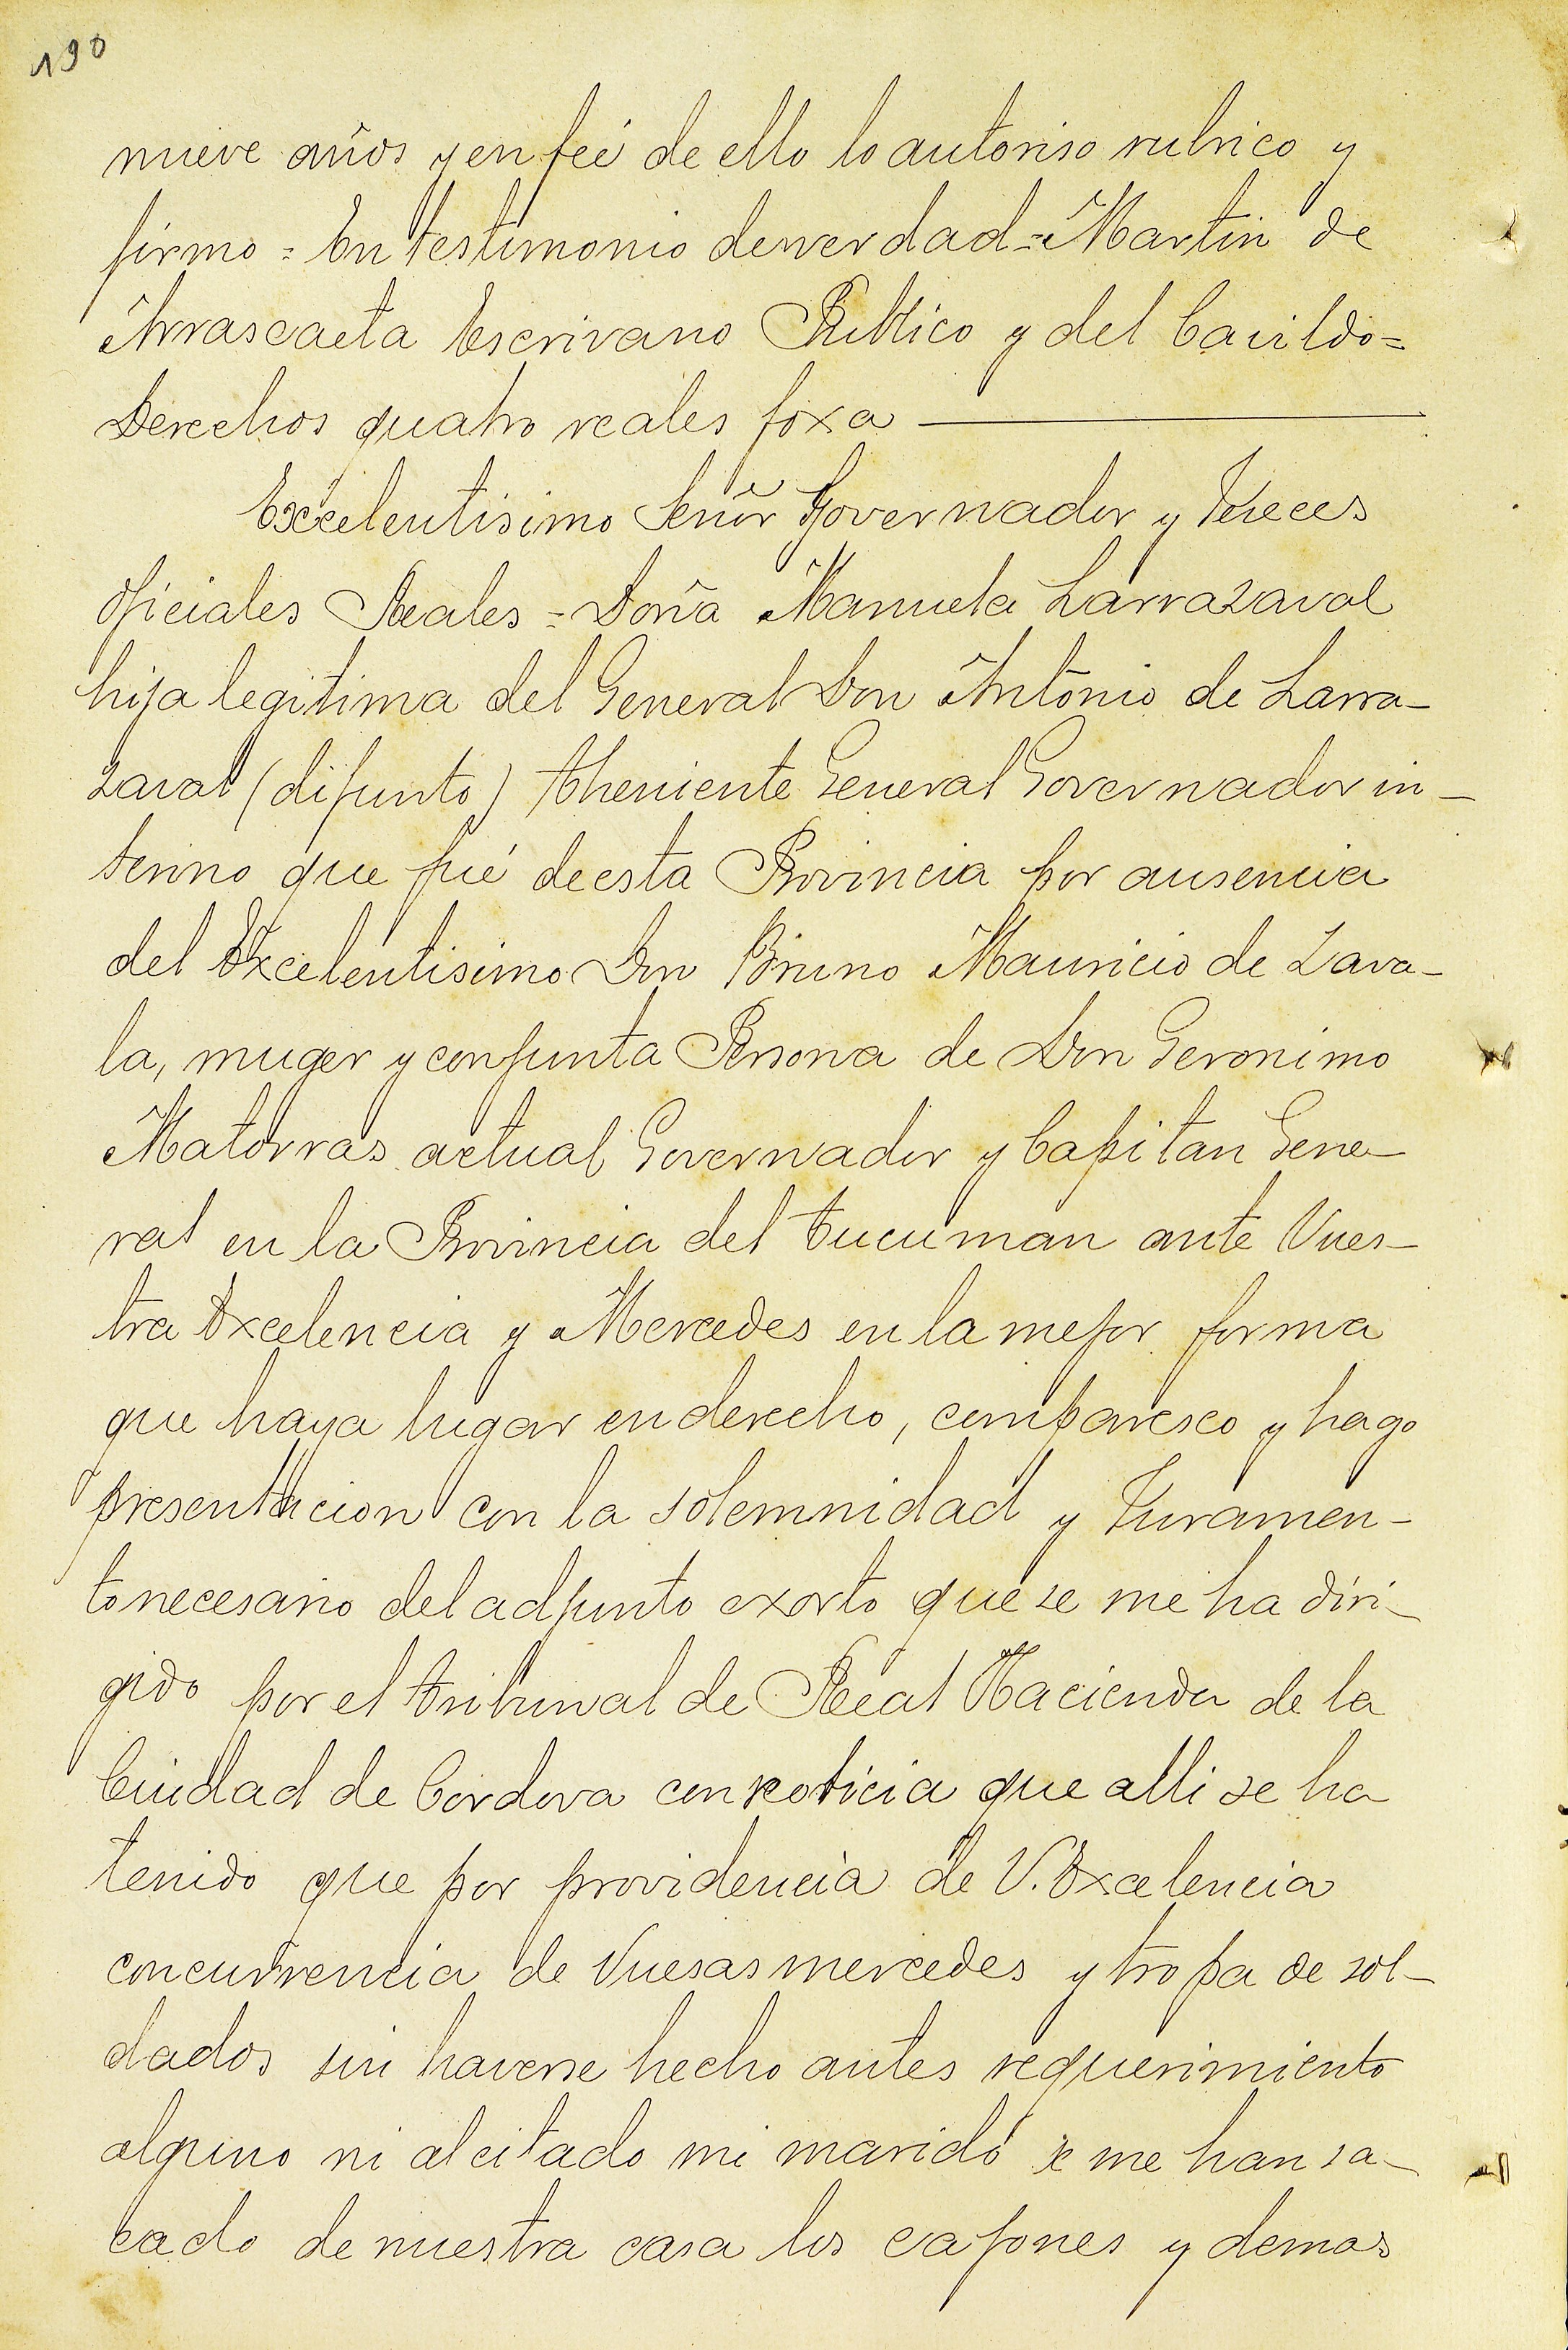 190
nueve años y en feé de ello lo autoriso rubrico y
firmo = En testimonio de verdad = Martin de
Arrascaeta Escrivano Publico y del Cavildo =
Derechos quatro reales foxa
Excelentisimo Señor Governador y Jueces
oficiales Reales = Doña Manuela Larrazaval
hija legitima del General Don Antonio de Larra-
zaval (difunto) Theniente General Governador in-
terino que fué de esta Provincia por ausencia
del Excelentisimo Don Bruno Mauricio de Zava-
la, muger y conjunta Persona de Don Geronimo
Matorras actual Governador y Capitan Gene-
ral en la Provincia del Tucuman ante Vues-
tra Excelencia y Mercedes en la mejor forma
que haya lugar en derecho, comparesco y hago
presentacion con la solemnidad y Juramen-
to necesario del adjunto exorto que se me ha diri-
gido por el tribunal de Real Hacienda de la
Ciudad de Cordova con noticia que alli se ha
tenido que por providencia de V. Excelencia
concurrencia de Vuesas mercedes y tropa de sol-
dados sin haverse hecho antes requerimiento
alguno ni al citado mi marido se me han sa-
cado de nuestra casa los cajones y demas